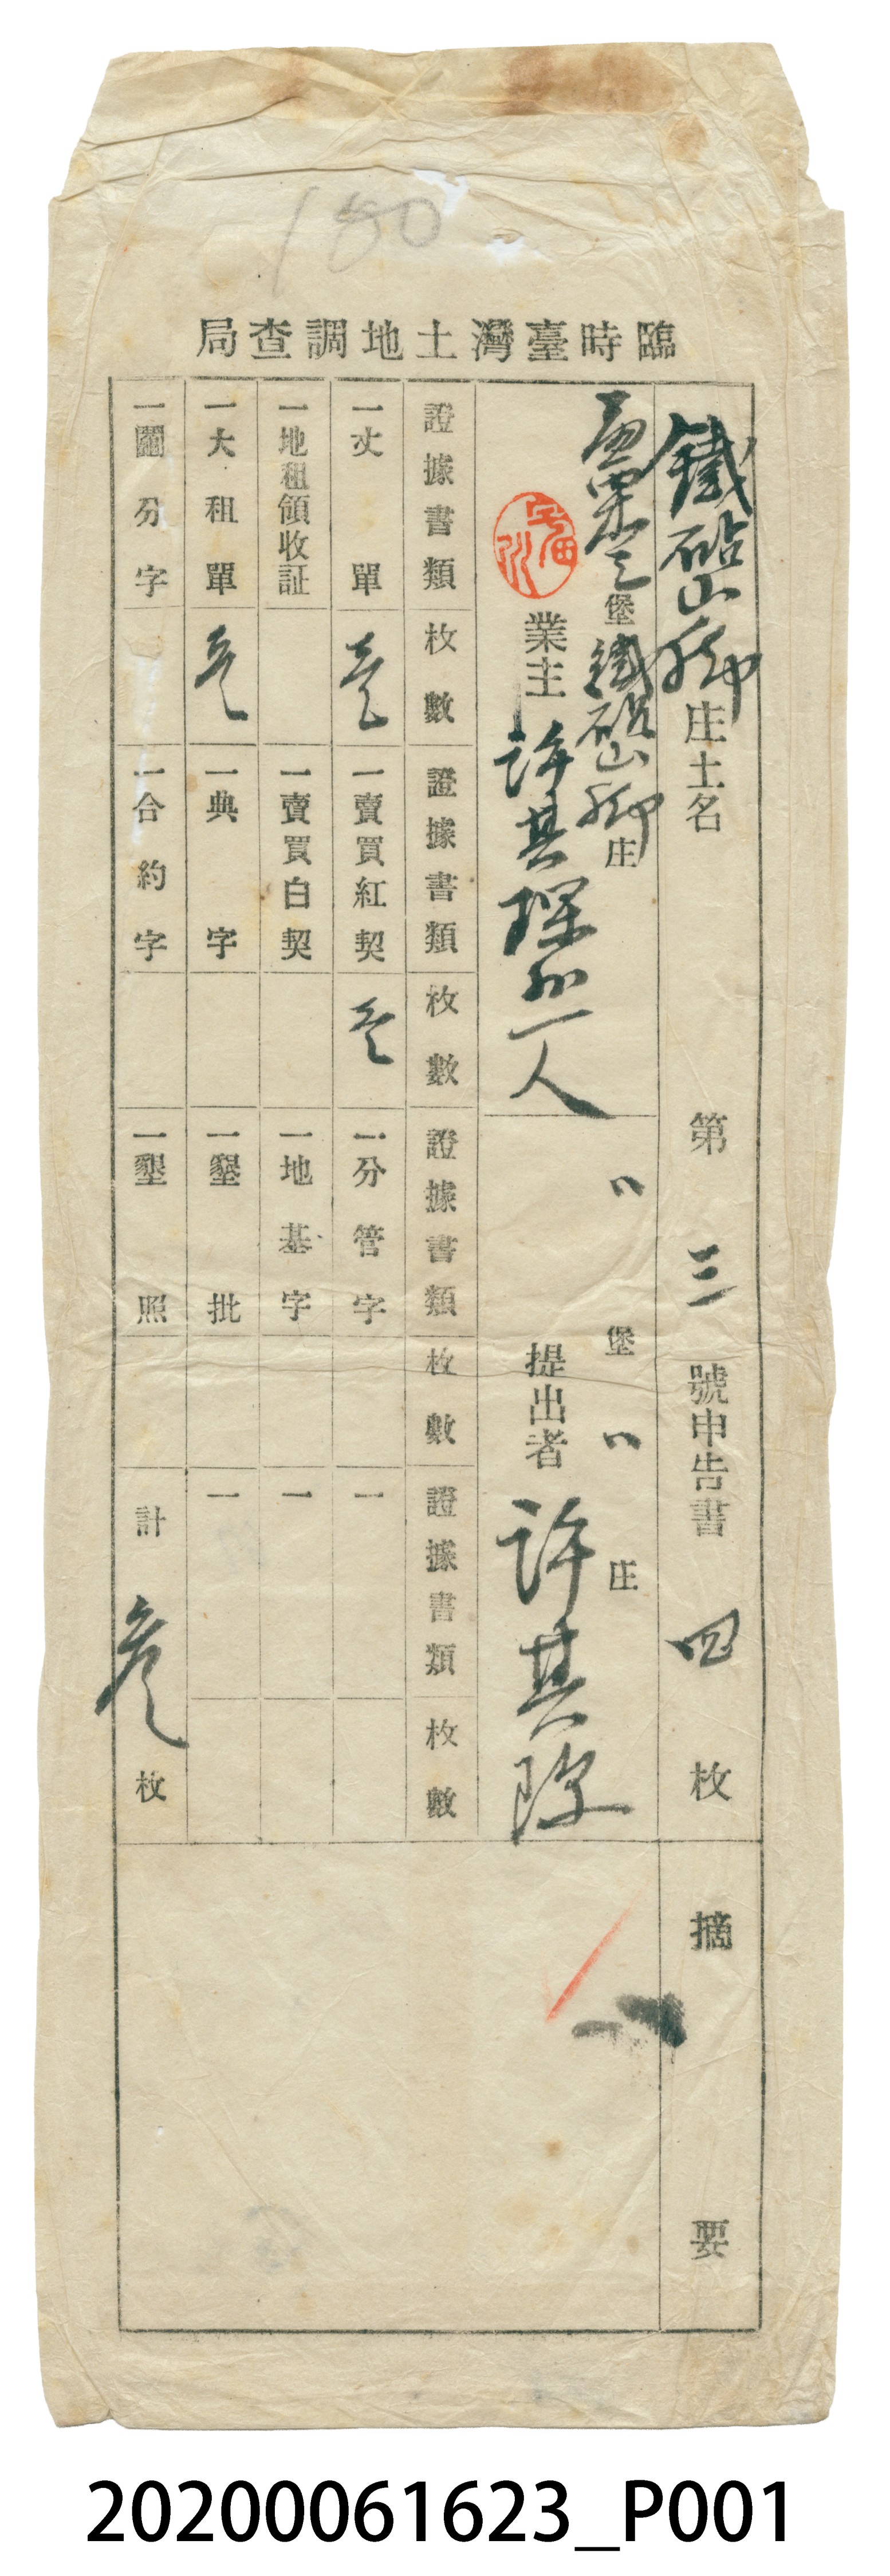 180
臨時臺灣土地調查局
鐵砧山脚庄土名 第三號申告書 四枚 摘要
苗栗三堡鐵砧山脚庄 〃堡〃庄
業主 許其琛外一人 提出者 許其琛
證據書類 枚數 證據書類 枚數 證據書類 枚數 證據書類 枚數
一丈單 壹 一賣買紅契 壹 一分管字 一
一地租領收証 一賣買白契 一地基字 一
一大租單 壹 一典字 一墾批 一
一鬮分字 一合約字 一墾照 計 叁枚
20200061623_P001